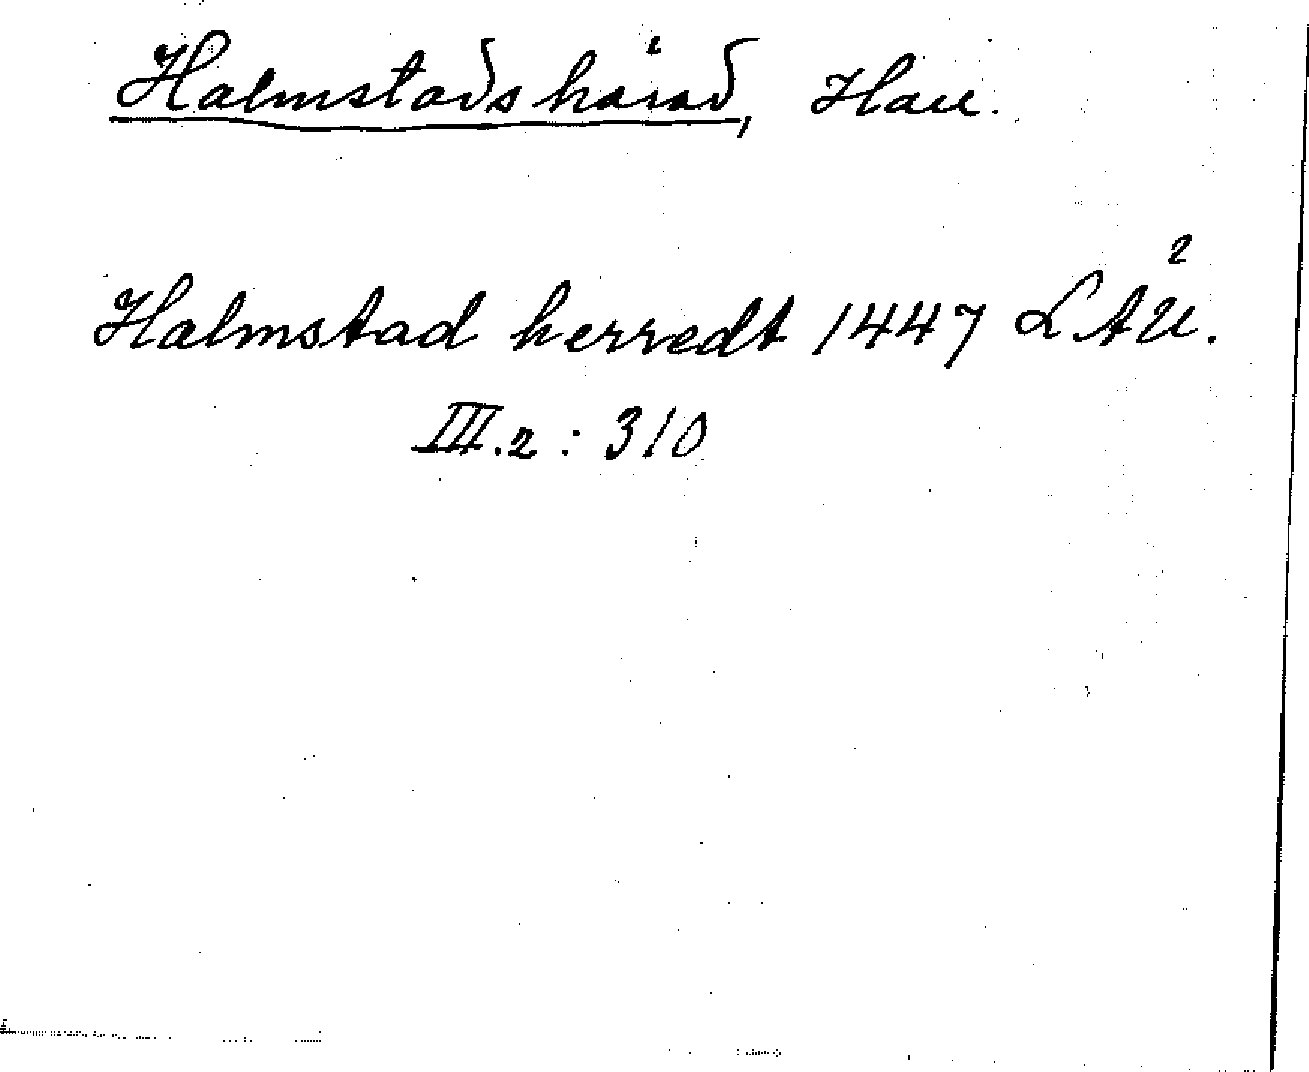 Halmstads härad, Hall.
Halmstad herredt 1447 LAU.
III.2 : 310